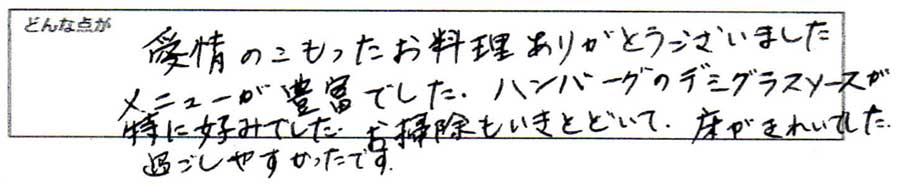 どんな点が
愛情のこもったお料理ありがとうございました
メニューが豊富でした。ハンバーグのデミグラスソースが
特に好みでした。お掃除もいきとどいて、床がきれいでした。
過ごしやすかったです。